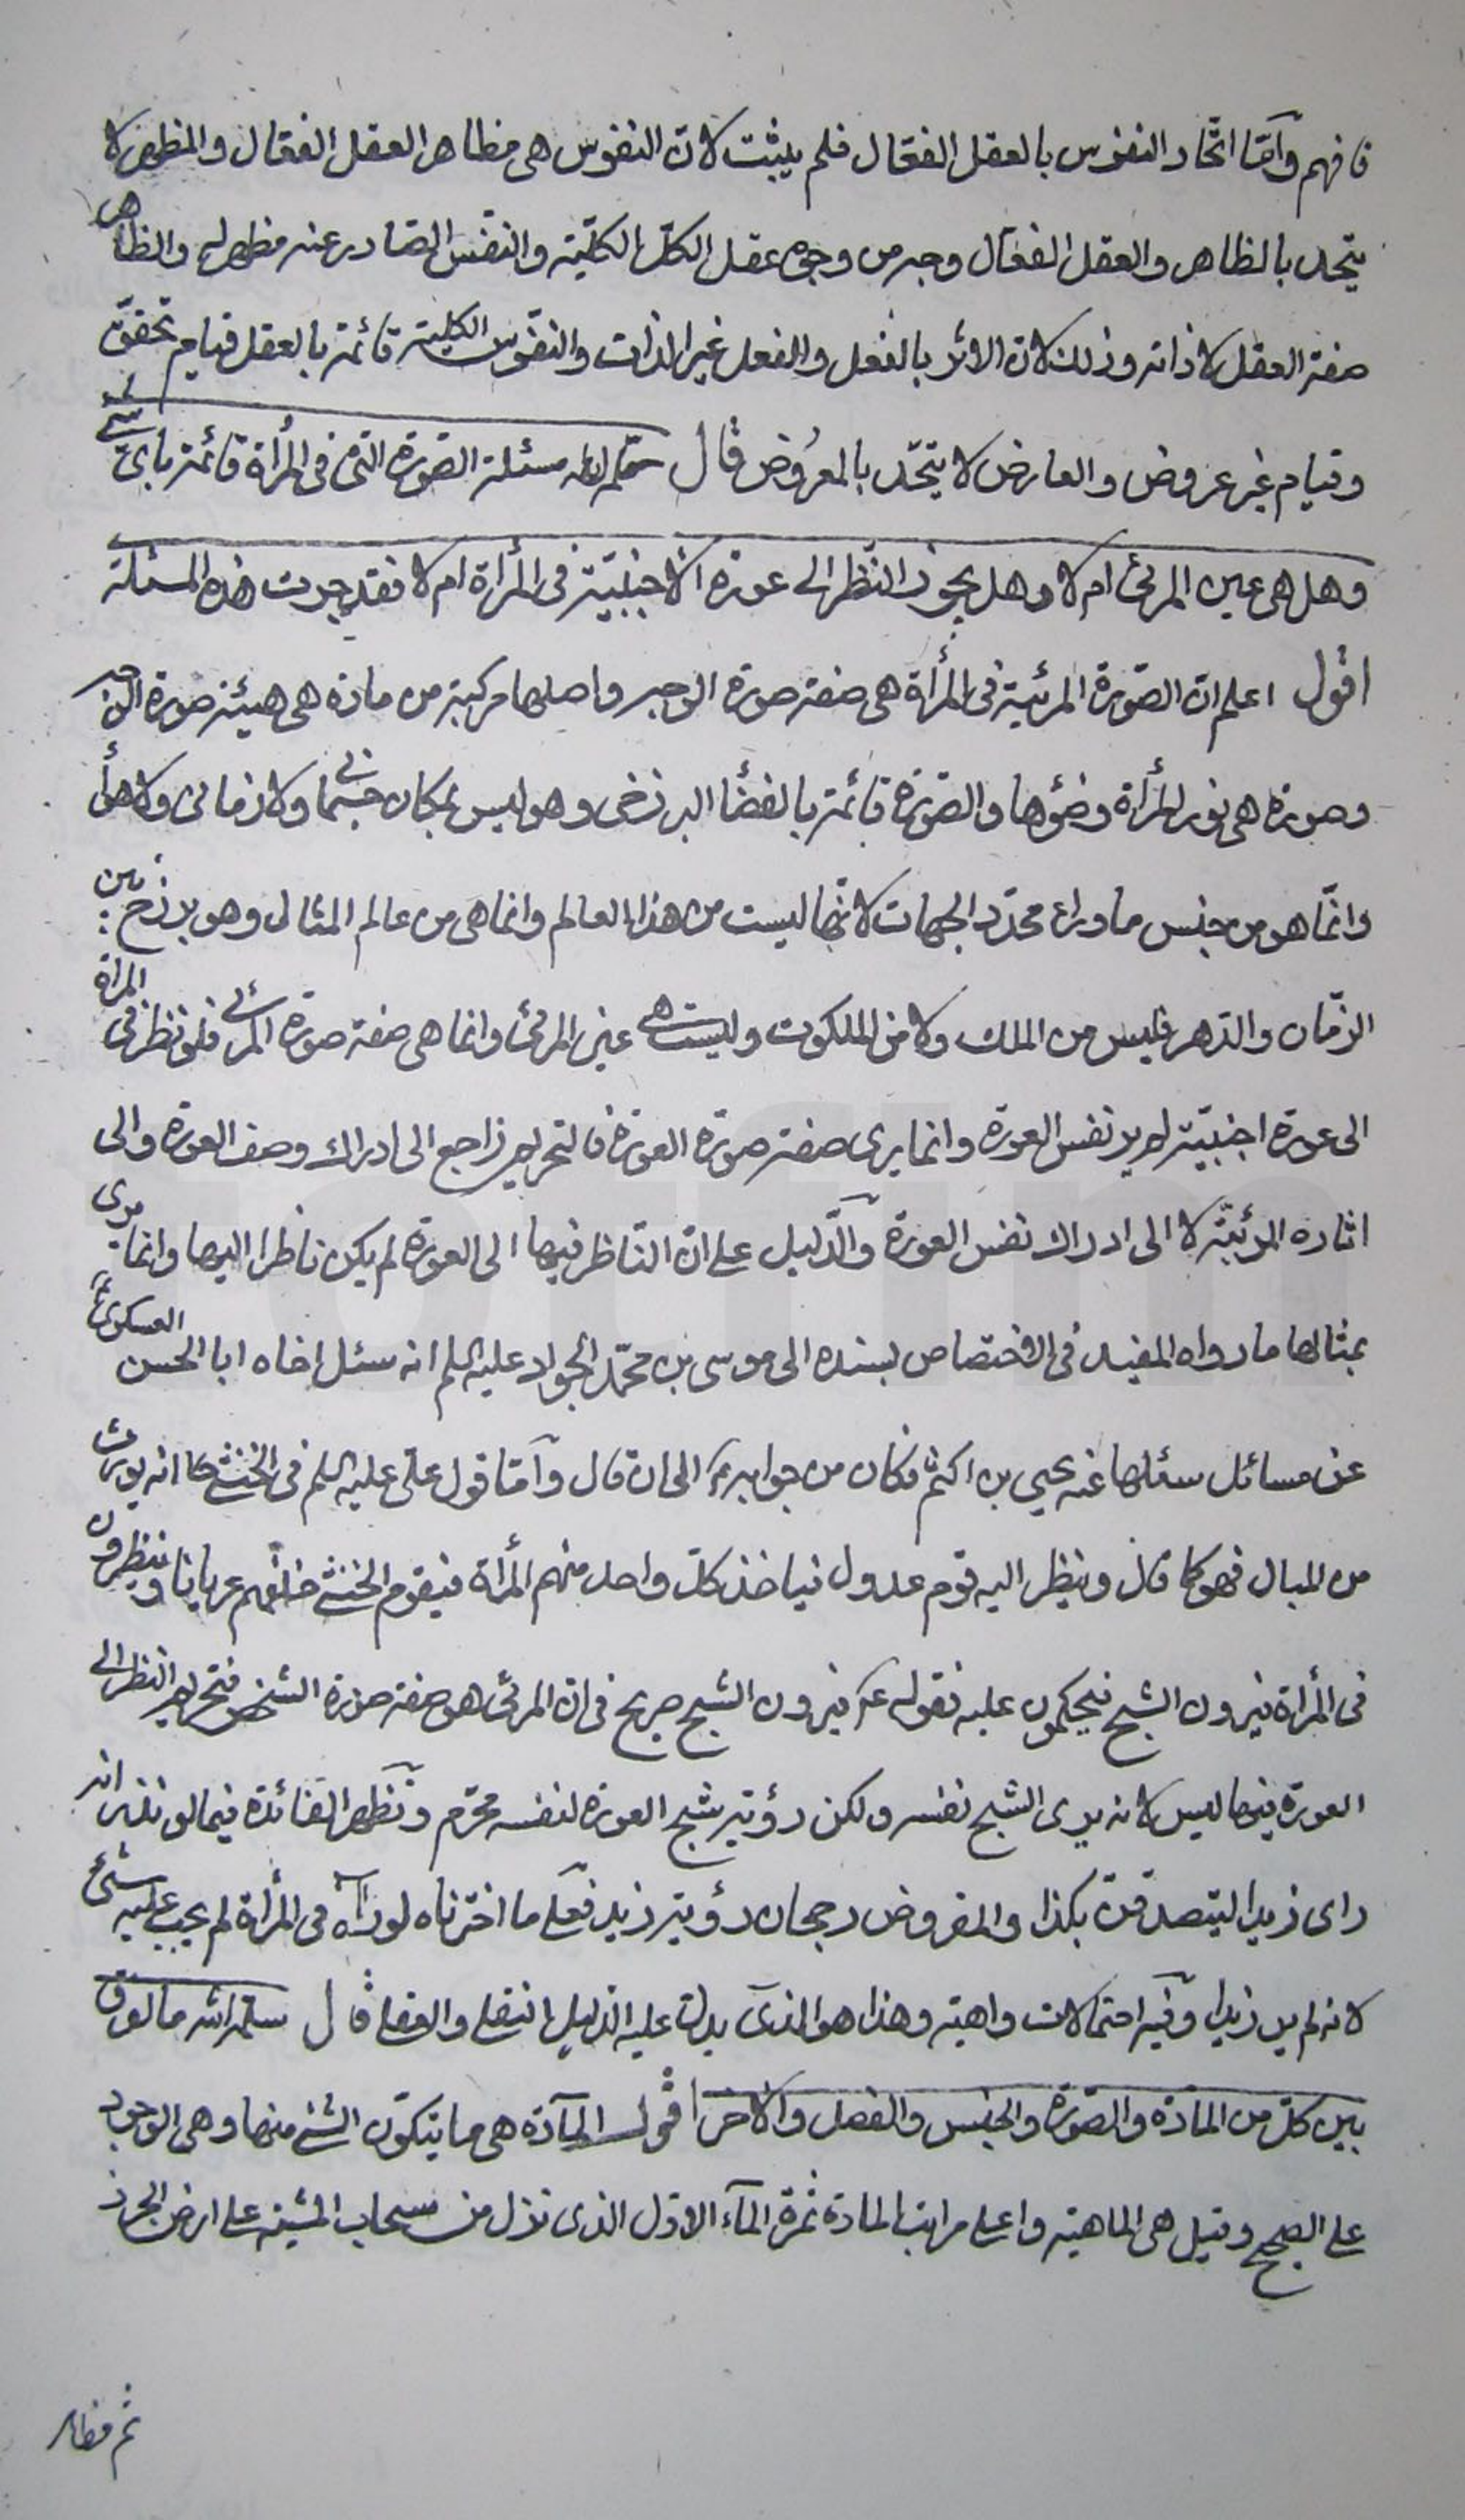 فافهم وأمّا اتّحاد النفوس بالعقل الفعّال فلم يثبت لانّ النفوس هى مظاهر العقل الفعّال والمظهر لا
يتّحد بالظاهر والعقل الفعّال وجه من وجوه عقل الكلّ الكلّيّة والنفس الصّادر عنه مظهر له والظاهر
صفة العقل لا ذاته وذلك لانّ الاثر بالفعل والفعل غير الذات والنّفوس الكلية قائمة بالعقل قيام تحقق
وقيام غير عروض والعارض لا يتّحد بالمعروض قال سلّمه الله مسئلة الصّورة التى فى المرأة قائمة باىّ شئ
وهل هى عين المرئى ام لا وهل يجوز النّظر الى عورة الاجنبيّة فى المرأة ام لا فقد جرت هذه المسئلة
اقول اعلم انّ الصّورة المرئية فى المرأة هى صفة صورة الوجه واصلها مركبة من مادة هى هيئة صورة الوجه
وصورة هى نور المرأة وضوؤها والصّورة قائمة بالفضأ البرزخى وهو ليس بمكان جسمانى ولا زمانى ولا هوأ
وانّما هو من جنس ما وراء محدّد الجهات لانّها ليست من هذا العالم وانما هى من عالم المثال وهو برزخ بين
الزّمان والدّهر فليس من الملك ولا من الملكوت وليست هى عين المرئى وانما هى صفة صورة المرئى فلو نظر فى المراة
الى عورة اجنبيّة لم ير نفس العورة وانما يرى صفة صورة العورة فالتحريم راجع الى ادراك وصف العورة والى
اثاره المرئيّة لا الى ادراك نفس العورة والدّليل على انّ النّاظر فيها الى العورة لم يكن ناظرا اليها وانما يرى
بمثالها ما رواه المفيد فى الاختصاص بسنده الى موسى بن محمّد الجواد عليه السلم انه سئل اخاه ابا الحسن العسكرى ع
عن مسائل سئلها عنه يحيى بن اكثم فكان من جوابه الى ان قال وأمّا قول علىّ عليه السلم فى الخنثى انه يورث
من المبال فهو كما قال وينظر اليه قوم عدول فياخذ كلّ واحد منهم المرأة فيقوم الخنثى خلفهم عريانا وينظرون
فى المرأة فيرون الشبح فيحكمون عليه فقوله ع فيرون الشبح صريح فى انّ المرئى هو صفة صورة الشخص فتحريم النظر الى
العورة فيها ليس لانه يرى الشبح نفسه ولكن رؤية شبح العورة لنفسه محرّم وتظهر الفائدة فيما لو نذر انه
راى زيدا ليتصدقنّ بكذا والمفروض رجحان رؤية زيد فعلى ما اخترناه لو رآه فى المرأة لم يجب عليه شئ
لانه لم ير زيدا وفيه احتمالات واهية وهذا هو الذى يدلّ عليه الدّليل النقلى والعقلى قال سلّمه الله ما الفرق
بين كلّ من المادّة والصّورة والجنس والفصل والاخر اقول المآدّة هى ما يتكوّن الشئ منها وهى الوجود
على الصحيح وقيل هى الماهية واعلى مراتب المادة ثمرة المآء الاوّل الذى نزل من سحاب المشية على ارض الجرز